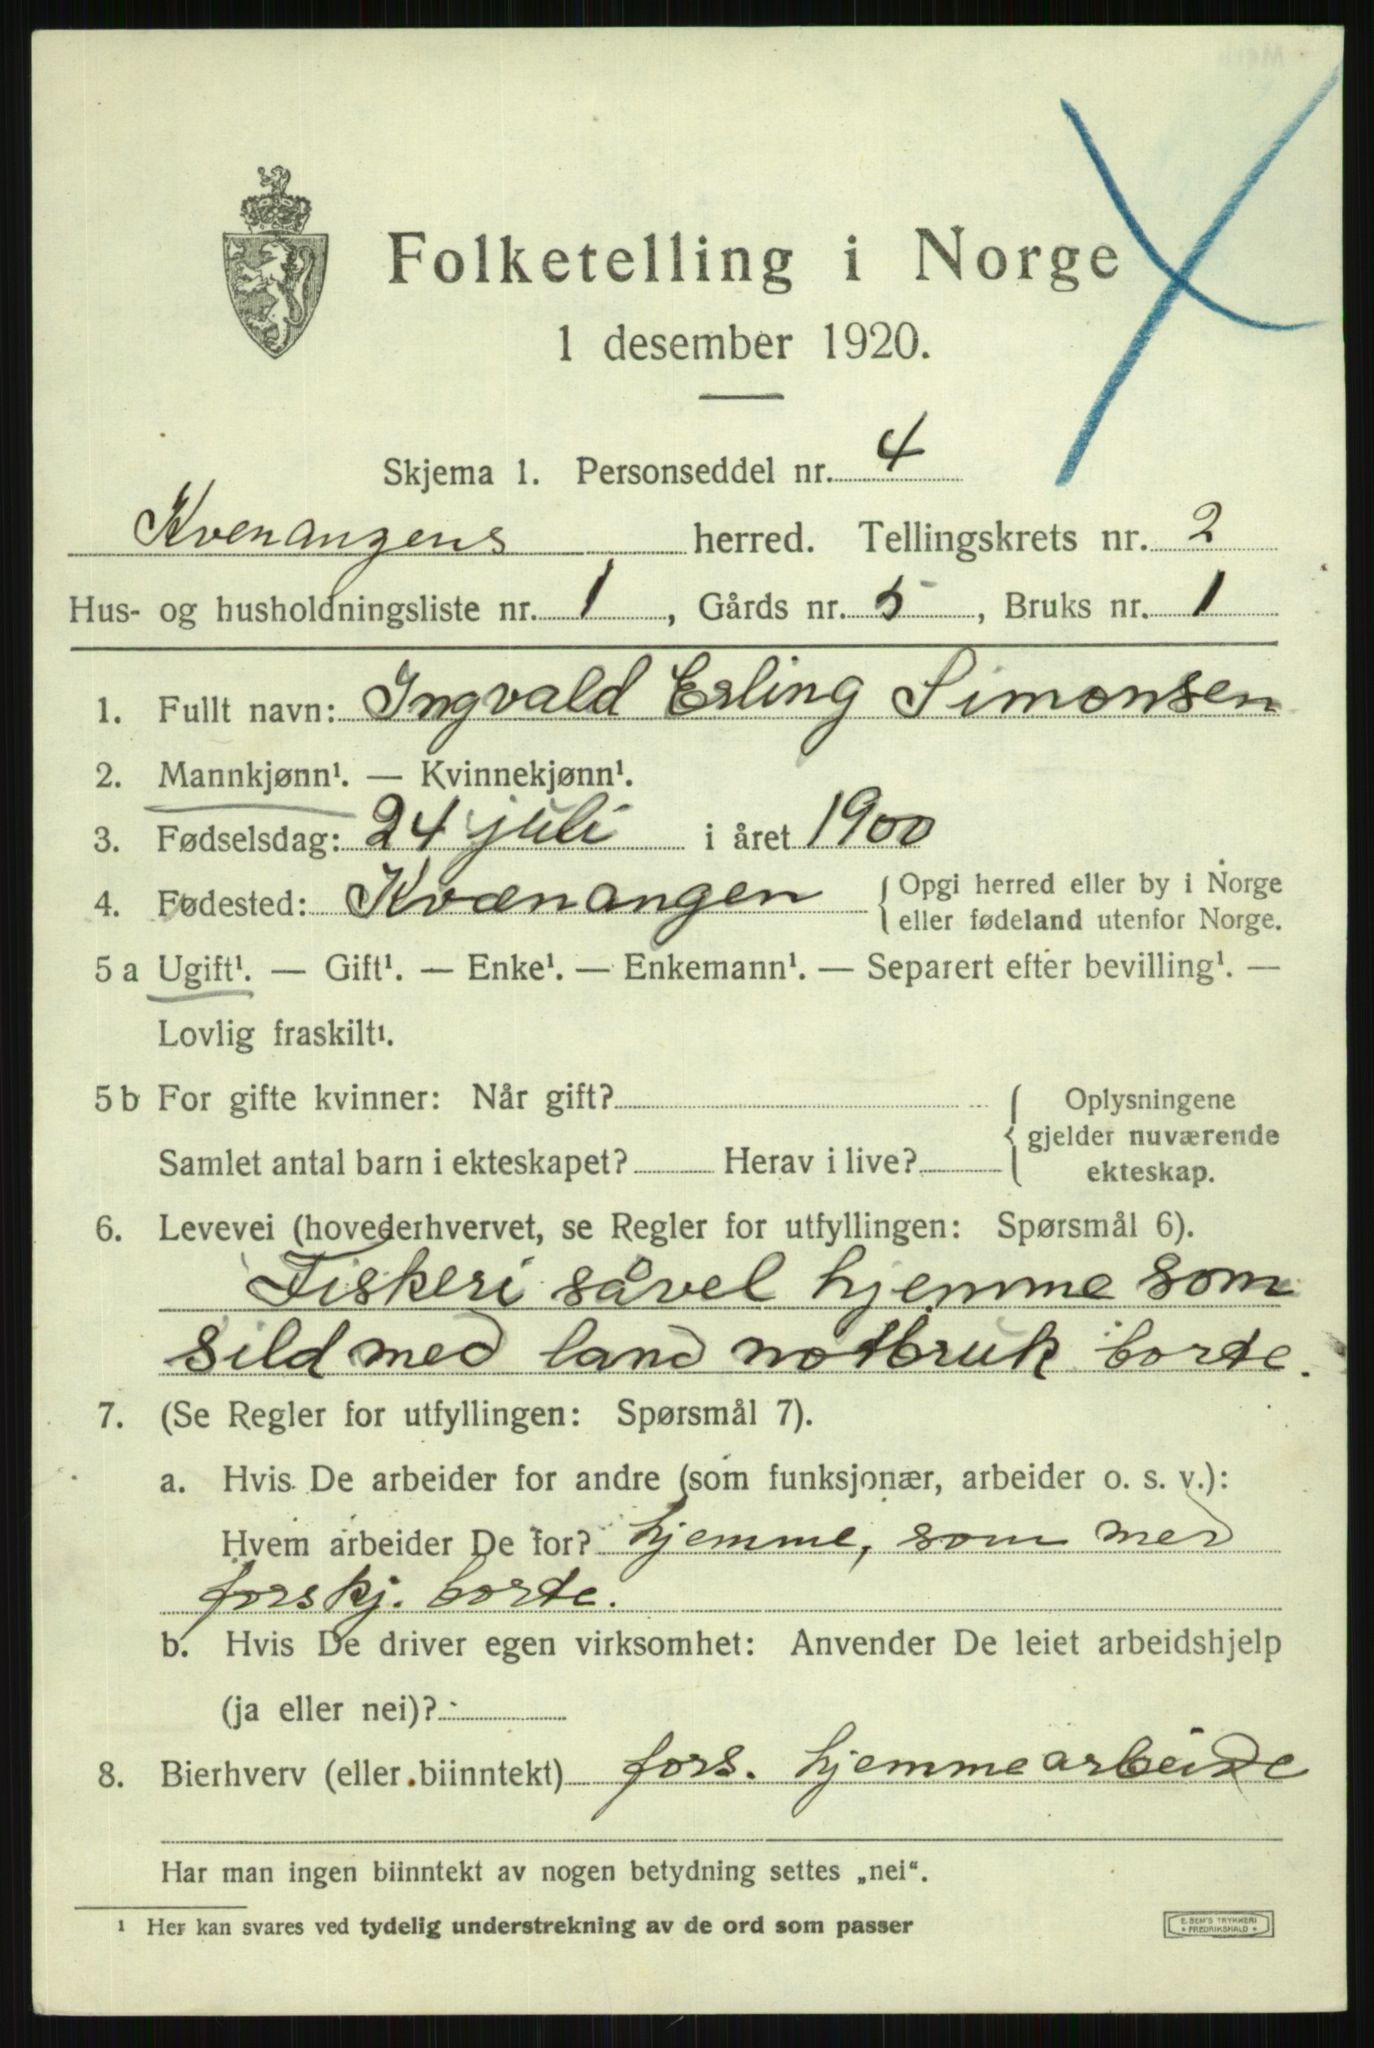 Folketelling i Norge
1 desember 1920.
Skjema 1. Personseddel nr. 4
Kvenangens herred. Tellingskrets nr. 2
Hus- og husholdningsliste nr. 1, Gårds nr. 5, Bruks nr. 1
1. Fullt navn: Ingvald Erling Simonsen
2. Mannkjønn¹. — Kvinnekjønn¹.
3. Fødselsdag: 24 juli i året 1900
4. Fødested: Kvænangen { Opgi herred eller by i Norge
eller fødeland utenfor Norge.
5 a Ugift¹. — Gift¹. — Enke¹. — Enkemann¹. — Separert efter bevilling¹. —
Lovlig fraskilt¹.
5 b For gifte kvinner: Når gift? { Oplysningene
gjelder nuværende
Samlet antal barn i ekteskapet? Herav i live?
ekteskap.
6. Levevei (hovederhvervet, se Regler for utfyllingen: Spørsmål 6).
Fiskeri såvel hjemme som
sild med land notbruk borte.
7. (Se Regler for utfyllingen: Spørsmål 7).
a. Hvis De arbeider for andre (som funksjonær, arbeider o. s. v.):
Hvem arbeider De for? hjemme, som med
forskj. borte.
b. Hvis De driver egen virksomhet: Anvender De leiet arbeidshjelp
(ja eller nei)?
8. Bierhverv (eller biinntekt) fors. hjemmearbeide
Har man ingen biinntekt av nogen betydning settes „nei“.
¹ Her kan svares ved tydelig understrekning av de ord som passer
E. SEM'S TRYKKERI
FREDRIKSHALD